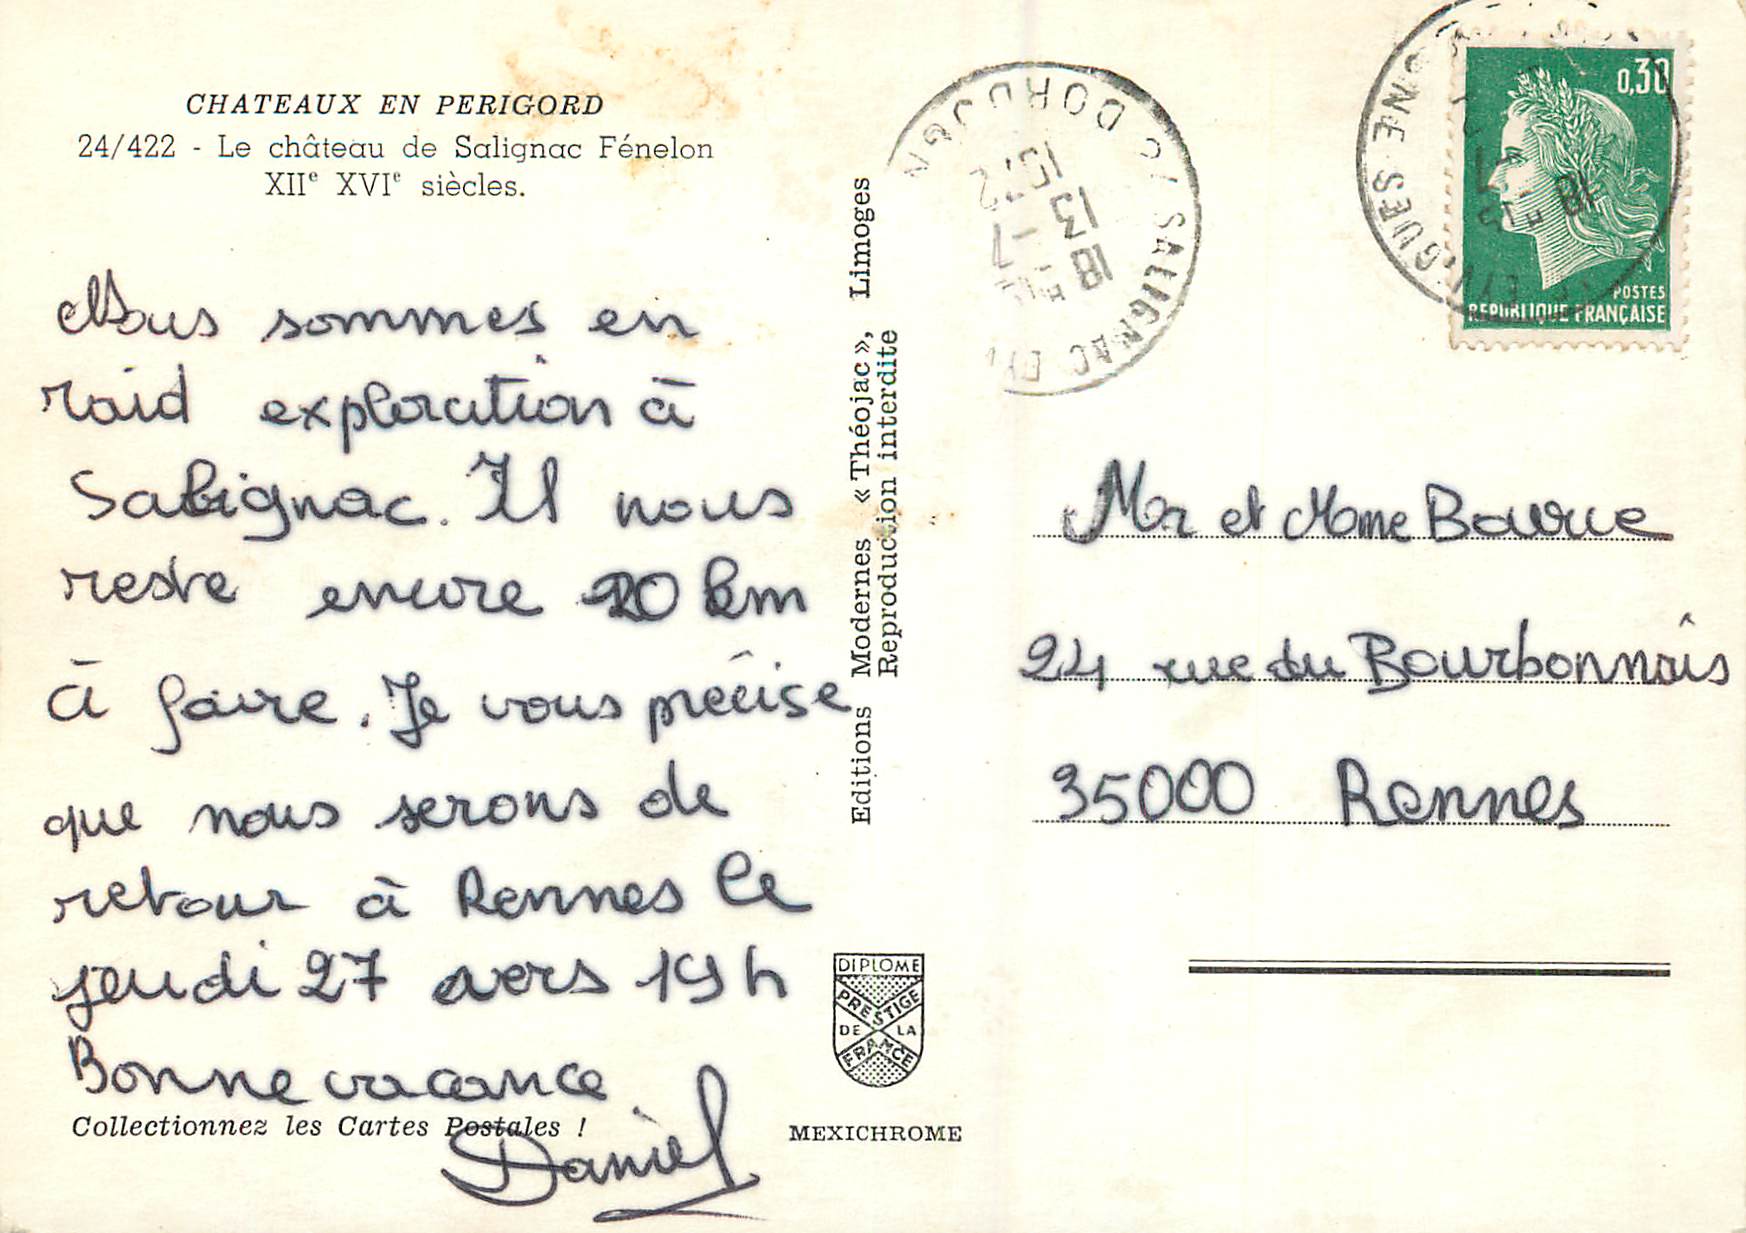 CHATEAUX EN PERIGORD
24/422 - Le château de Salignac Fénelon
XIIe XVIe siècles.
Nous sommes en
raid exploration à
Salignac. Il nous
reste encore 20 km
à faire. Je vous précise
que nous serons de
retour à Rennes le
jeudi 27 vers 19 h
Bonne vacance
Daniel
Collectionnez les Cartes Postales !
Editions Modernes « Théojac », Limoges
Reproduction interdite
DIPLOME
PRESTIGE
DE LA
FRANCE
MEXICHROME
SALIGNAC
DORDOGN
18 H 15
13 - 7
0,30
POSTES
REPUBLIQUE FRANÇAISE
18 H 15
Mr et Mme
24 rue du Bourbonnais
35000 Rennes